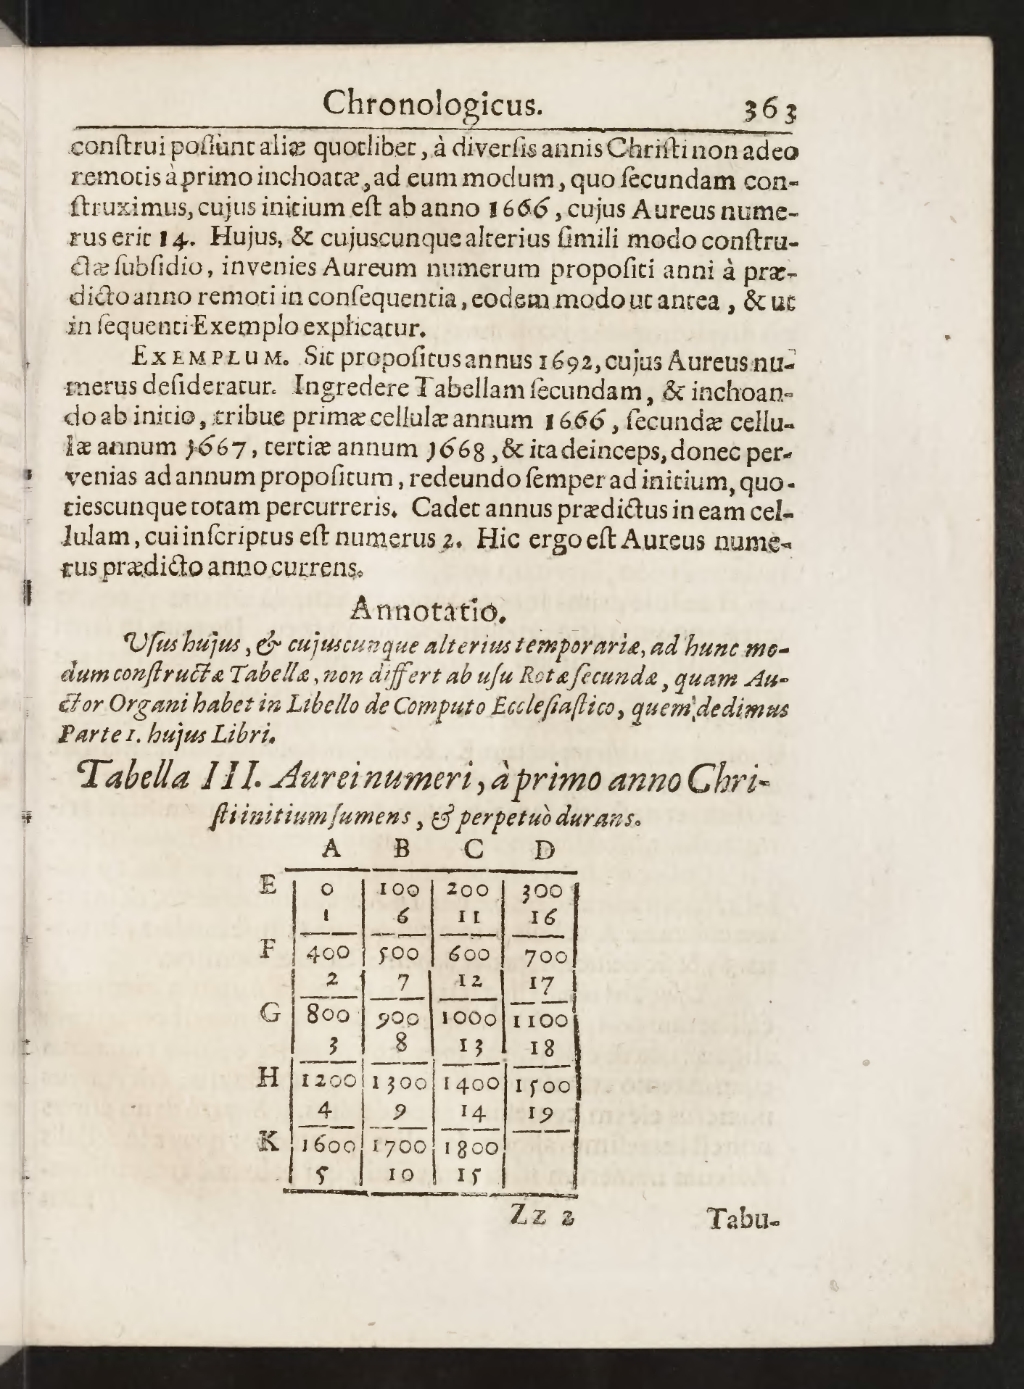 Chronologicus. 363
conſtrui poſſunt aliæ quotlibet, à diverſis annis Chriſti non adeo
remotis à primo inchoatæ, ad eum modum, quo ſecundam con-
ſtruximus, cujus initium eſt ab anno 1666, cujus Aureus nume-
rus erit 14. Hujus, & cujuscunque alterius ſimili modo conſtru-
ctæ ſubſidio, invenies Aureum numerum propoſiti anni à præ-
dicto anno remoti in conſequentia, eodem modo ut antea, & ut
in ſequenti Exemplo explicatur.
EXEMPLUM. Sit propoſitus annus 1692, cujus Aureus nu-
merus deſideratur. Ingredere Tabellam ſecundam, & inchoan-
do ab initio, tribue primæ cellulæ annum 1666, ſecundæ cellu-
læ annum 1667, tertiæ annum 1668, & ita deinceps, donec per-
venias ad annum propoſitum, redeundo ſemper ad initium, quo-
tiescunque totam percurreris. Cadet annus prædictus in eam cel-
lulam, cui inſcriptus eſt numerus 2. Hic ergo eſt Aureus nume-
rus prædicto anno currens.
Annotatio.
Uſus hujus, & cujuscunque alterius temporariæ, ad hunc mo-
dum conſtructæ Tabellæ, non differt ab uſu Rotæ ſecundæ, quam Au-
ctor Organi habet in Libello de Computo Eccleſiaſtico, quem dedimus
Parte 1. hujus Libri.
Tabella III. Aurei numeri, à primo anno Chri-
ſti initium ſumens, & perpetuò durans.
A B C D
E 0 100 200 300
1 6 11 16
F 400 500 600 700
2 7 12 17
G 800 900 1000 1100
3 8 13 18
H 1200 1300 1400 1500
4 9 14 19
K 1600 1700 1800
5 10 15
Zz 2 Tabu-